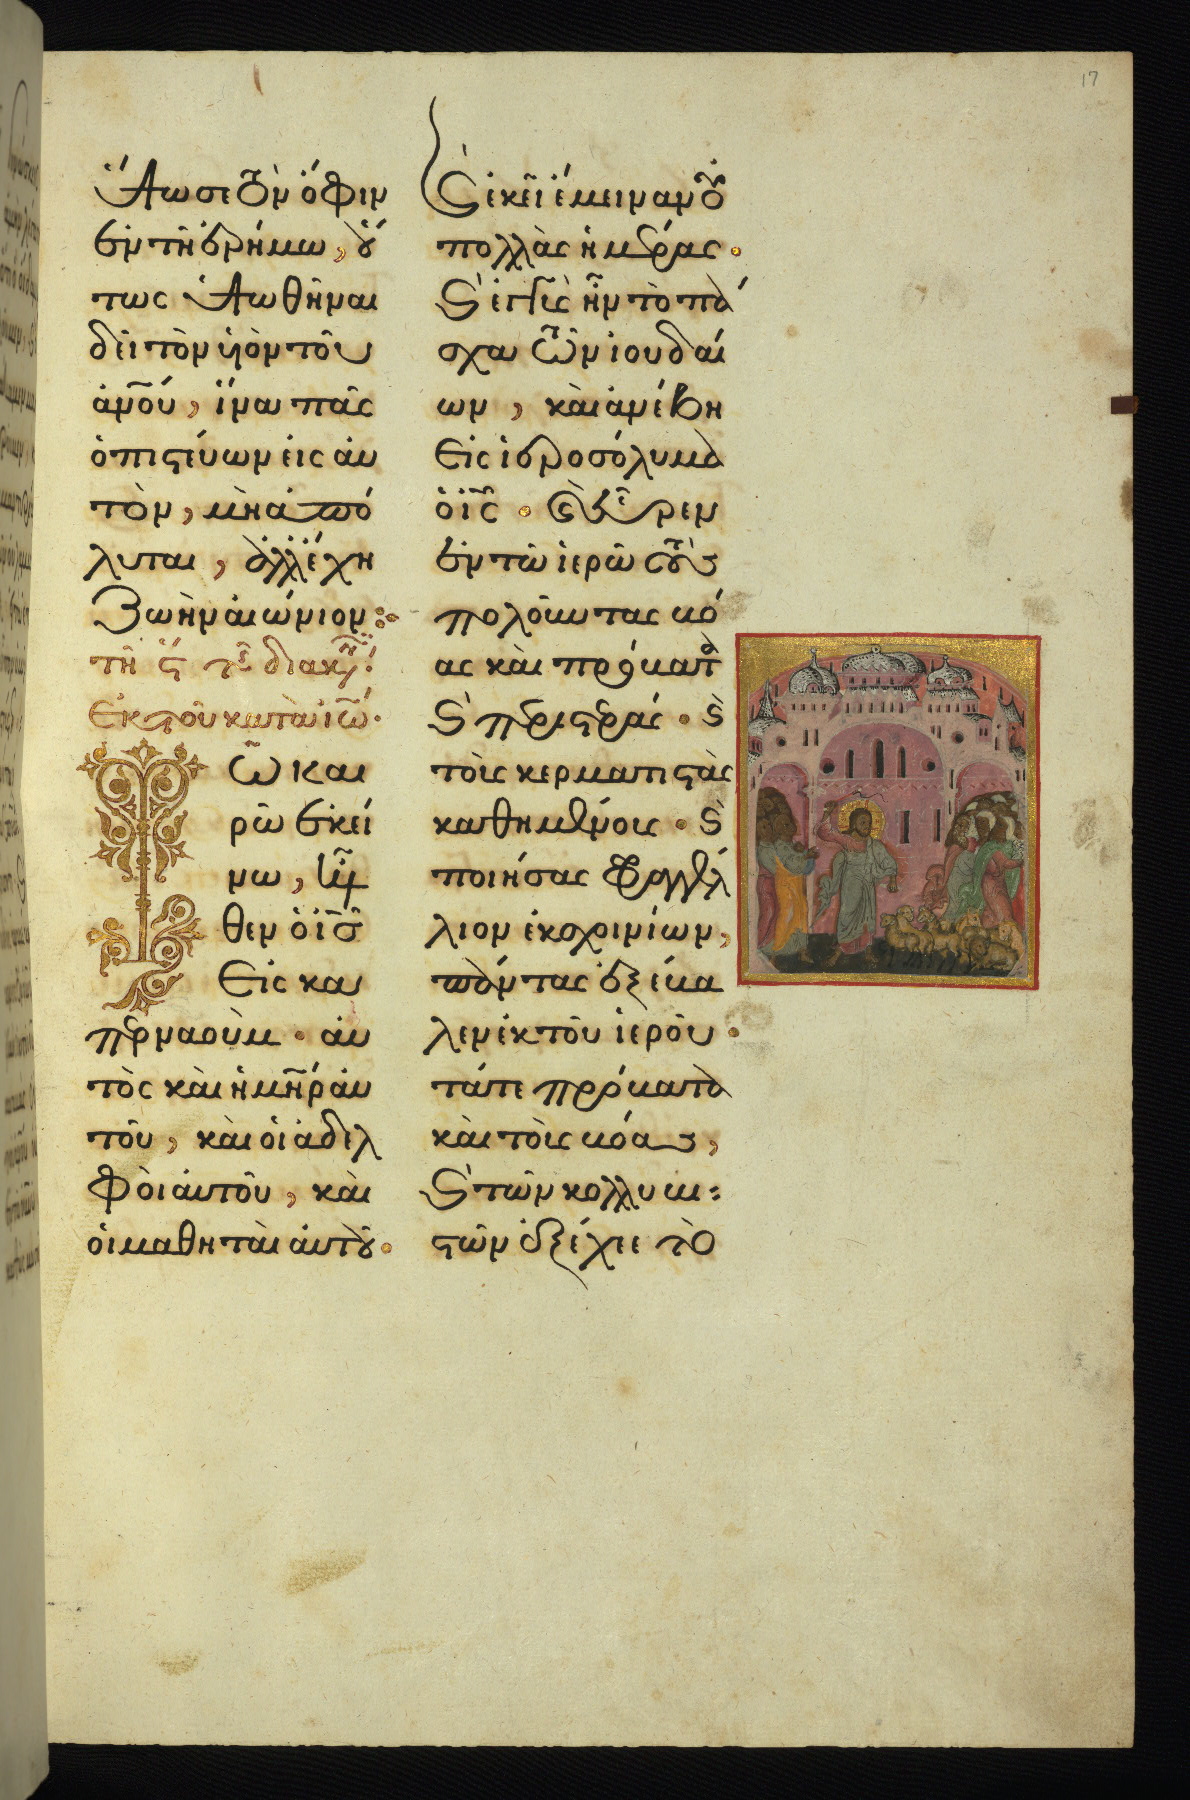 17
ὕψωσε τὸν ὄφιν
ἐν τῇ ἐρήμω, οὕ
τως ὑψωθῆναι
δεῖ τὸν υἱὸν τοῦ
ἀν̅ου, ἵνα πᾶς
ὁ πιστεύων εἰς αὐ
τὸν, μὴ ἀπό
ληται, ἀλλ' ἔχη
ζωὴν αἰώνιον:
τῇ ϛ τῆς διακινησίμου
Ἐκ τοῦ κατὰ ἰω
Τῶ και
ρῶ ἐκεί
νω, κατῆλ
θεν ὁ ἰς
Εἰς κα
περναοὺμ. αὐ
τὸς καὶ ἡ μηρ αὐ
τοῦ, καὶ οἱ ἀδελ
φοὶ αὐτοῦ, καὶ
οἱ μαθηταὶ αὐτοῦ.
Ϛ ἐκεῖ ἔμειναν οὐ
πολλὰς ἡμέρας.
Ϛ ἐγγὺς ἦν τὸ πά
σχα τῶν ἰουδαί
ων, καὶ ἀνέβη
Εἰς ἱεροσόλυμα
ὁ ἰς. Ϛ εὗρεν
ἐν τῶ ἱερῶ τοὺς
πωλοῦντας βό
ας καὶ πρόβατα
Ϛ περιστεράς. Ϛ
τοὺς κερματιστὰς
καθημένους. Ϛ
ποιήσας φραγγέλ
λιον ἐκ σχοινίων,
πάντας ἐξέβα
λεν ἐκ τοῦ ἱεροῦ.
τά τε πρόβατα
καὶ τοὺς βόας,
Ϛ τῶν κολλυβι
στῶν ἐξέχεε τὸ